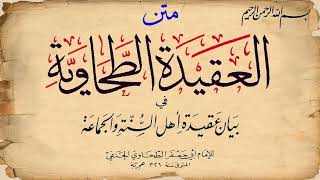 بسم الله الرحمن الرحيم
متن
العقيدة الطحاوية
في
بيان عقيدة أهل السنة والجماعة
للإمام أبي جعفر الطحاوي الحنفي
المتوفى سنة ٣٢١ هجرية